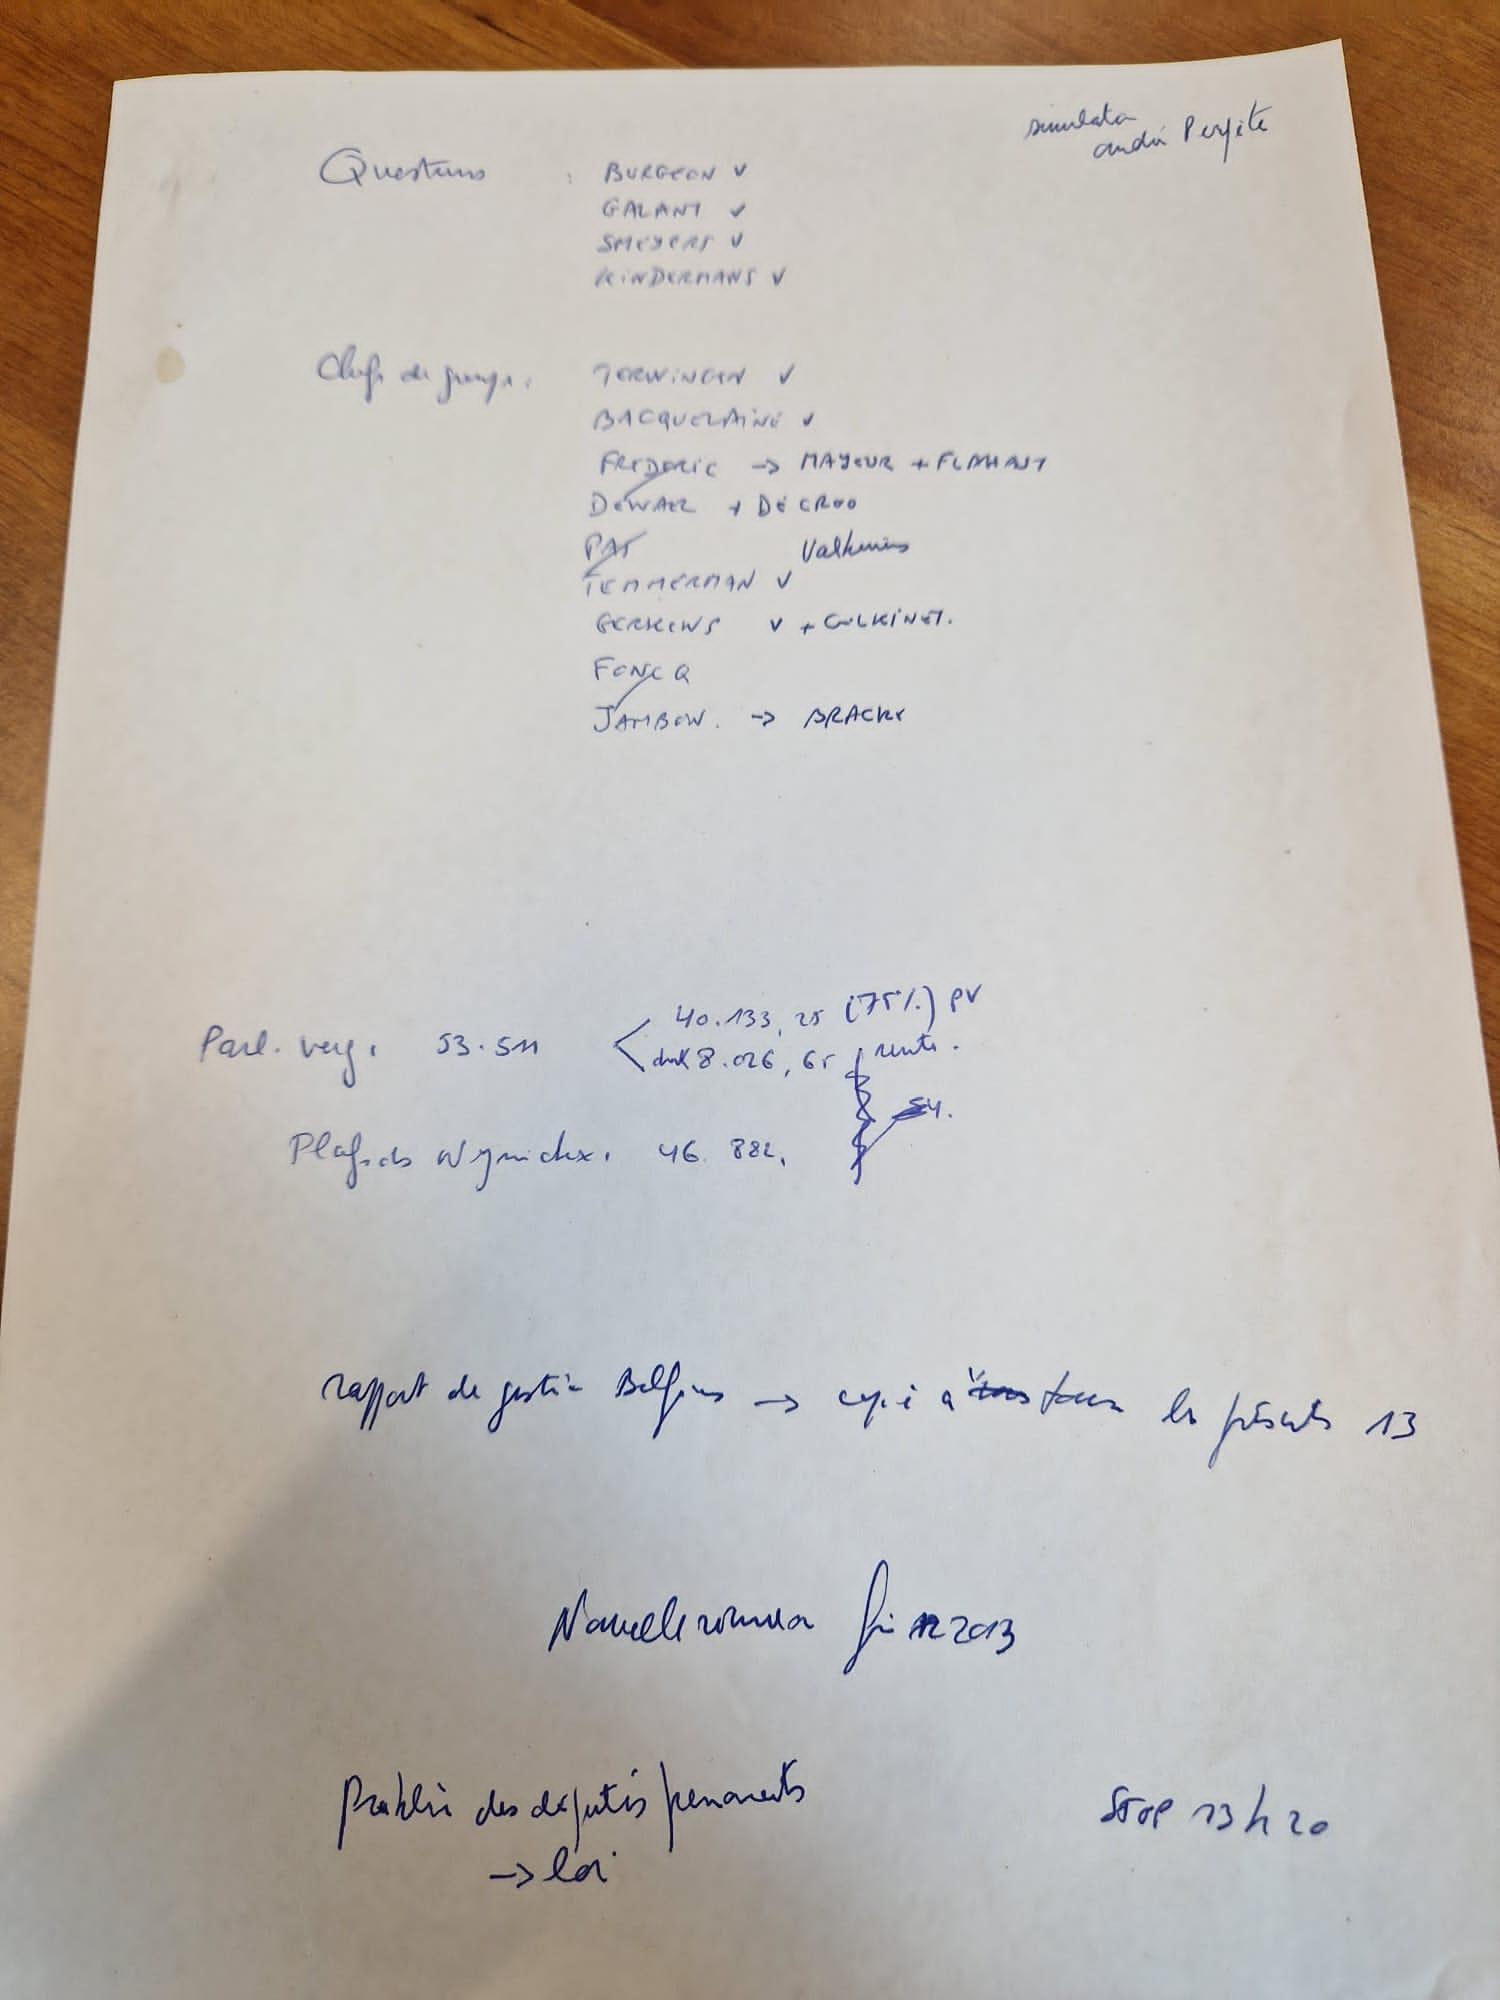 simulata
andré Perfite
Questeurs : BURGEON v
GALANT v
SMEYERS v
KINDERMANS v
Chefs de groupe : TERWINGEN v
BACQUELAINE v
FREDERIC → MAYEUR + FLAHAUT
DEWAEL + DE CROO
PAS Valkeniers
TEMMERMAN v
GERKENS v + GILKINET.
FONCQ
JAMBON. → BRACKE
Parl. verg. 53.511
40.133,25 (75%) PV
8.026,65 rente.
Plafonds Wyninckx. 46.882,
rapport de gestion Belfius → copie à tous les présents 13
Nouvelle fin 2013
Problème des députés permanents
→ loi
STOP 13h20